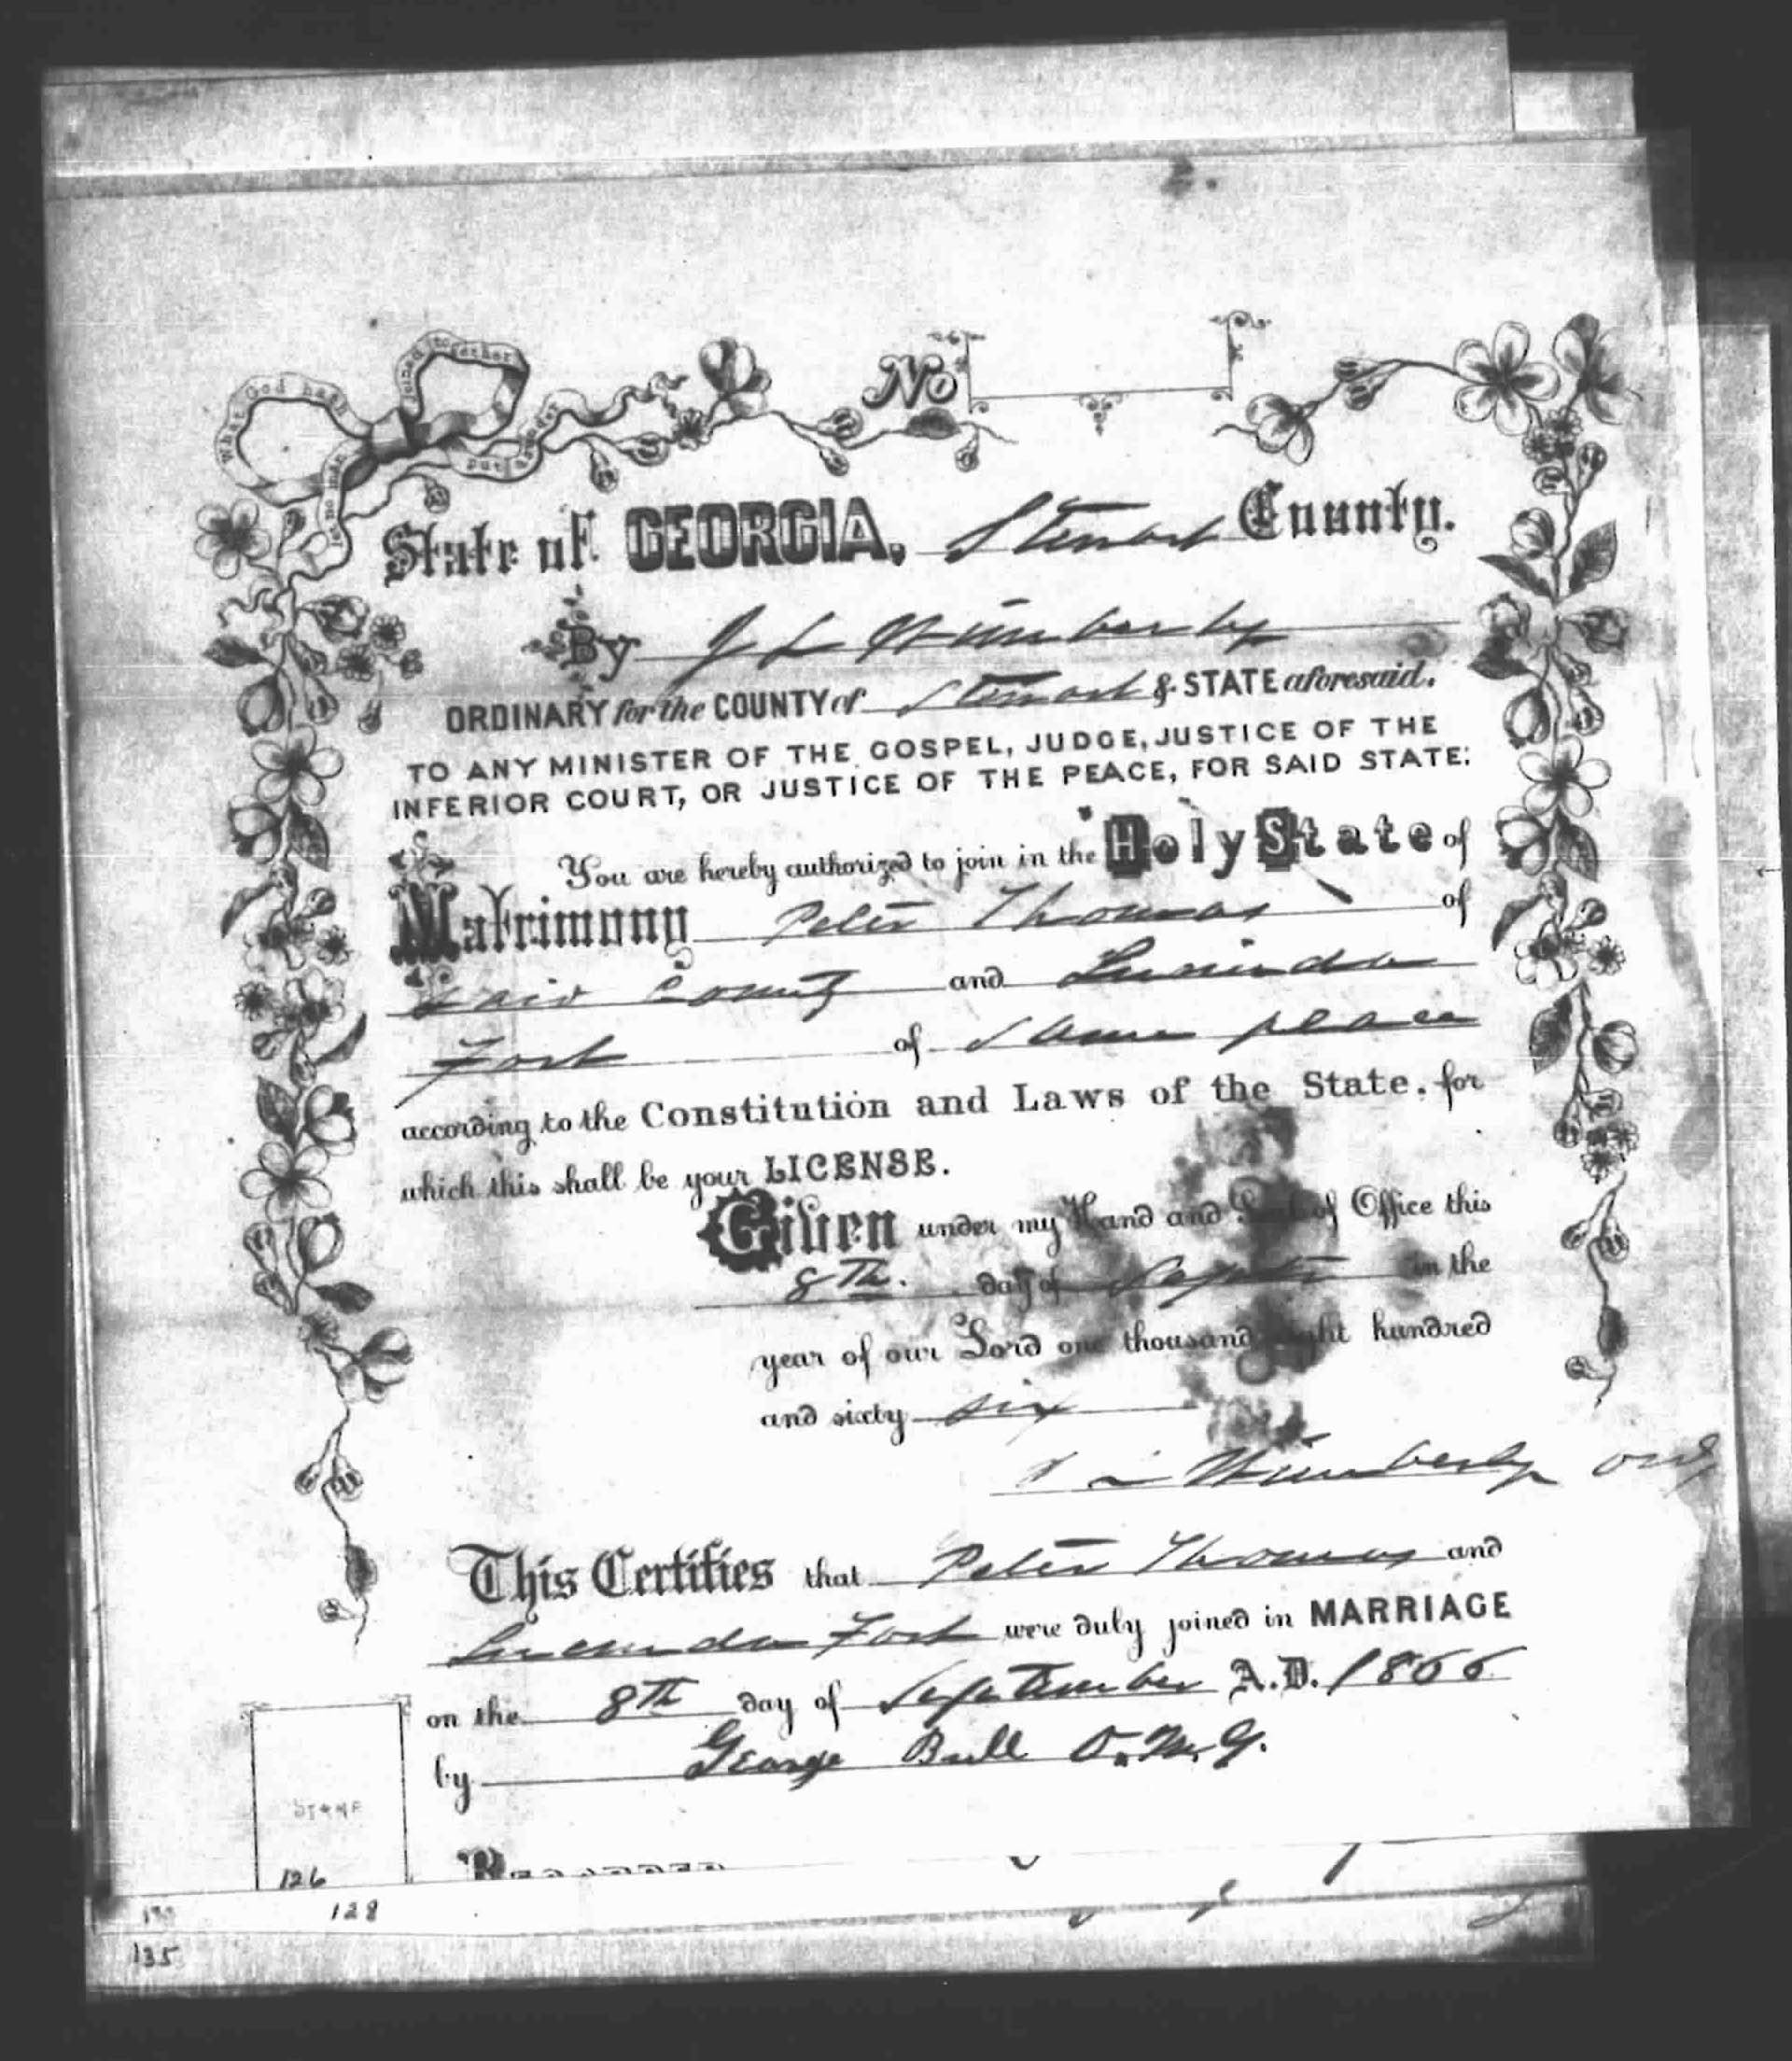 What God hath joined together let no man put asunder
No
State of GEORGIA, Stewart County.
By J L Wimberly
ORDINARY for the COUNTY of Stewart & STATE aforesaid.
TO ANY MINISTER OF THE GOSPEL, JUDGE, JUSTICE OF THE
INFERIOR COURT, OR JUSTICE OF THE PEACE, FOR SAID STATE:
You are hereby authorized to join in the Holy State of
Matrimony Peter Thomas of
said County and Lucinda
Fort of Same place
according to the Constitution and Laws of the State, for
which this shall be your LICENSE.
Given under my Hand and Seal of Office this
8th. day of Septr in the
year of our Lord one thousand eight hundred
and sixty six
J L Wimberly Ord
This Certifies that Peter Thomas and
Lucinda Fort were duly joined in MARRIAGE
on the 8th day of September A.D. 1866
by George Bull O.M.G.
STAMP
126
RECORDED
128
135